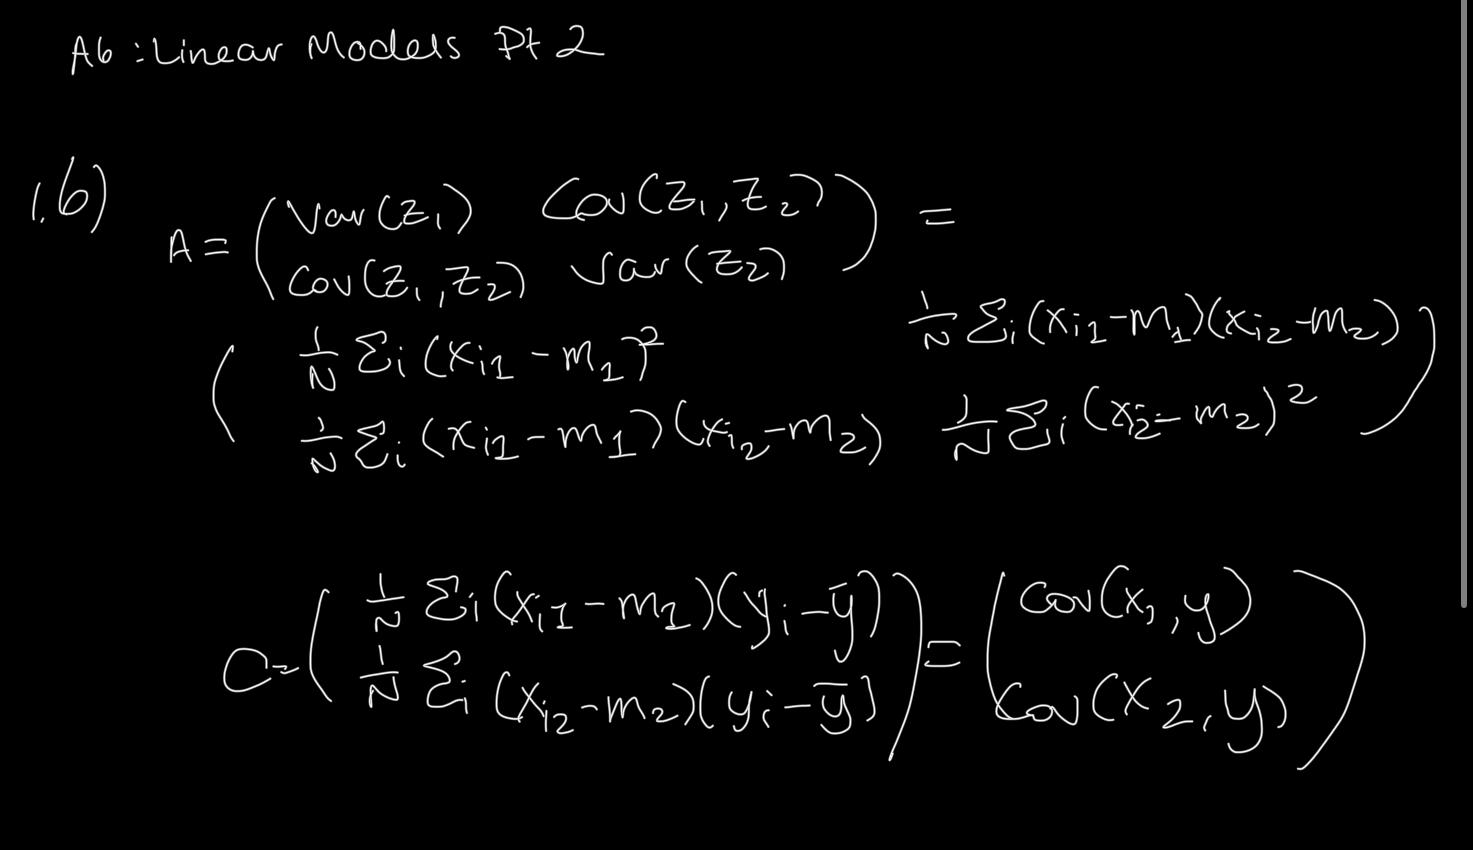 A6: Linear Models Pt 2
1.b)
A = ( Var(z₁) Cov(z₁, z₂) ) =
Cov(z₁, z₂) Var(z₂)
( 1/N Σi (xi1 - m1)² 1/N Σi (xi1 - m1)(xi2 - m2) )
1/N Σi (xi1 - m1)(xi2 - m2) 1/N Σi (xi2 - m2)²
C = ( 1/N Σi (xi1 - m1)(yi - ȳ) ) = ( Cov(x₁, y) )
1/N Σi (xi2 - m2)(yi - ȳ) Cov(x₂, y)